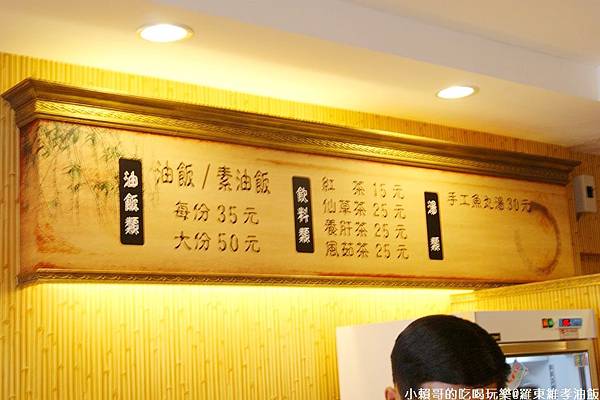 油飯類
油飯/素油飯
每份35元
大份50元
飲料類
紅 茶 15元
仙草茶 25元
養肝茶 25元
風茹茶 25元
湯類
手工魚丸湯30元
小賴哥的吃喝玩樂@羅東維孝油飯